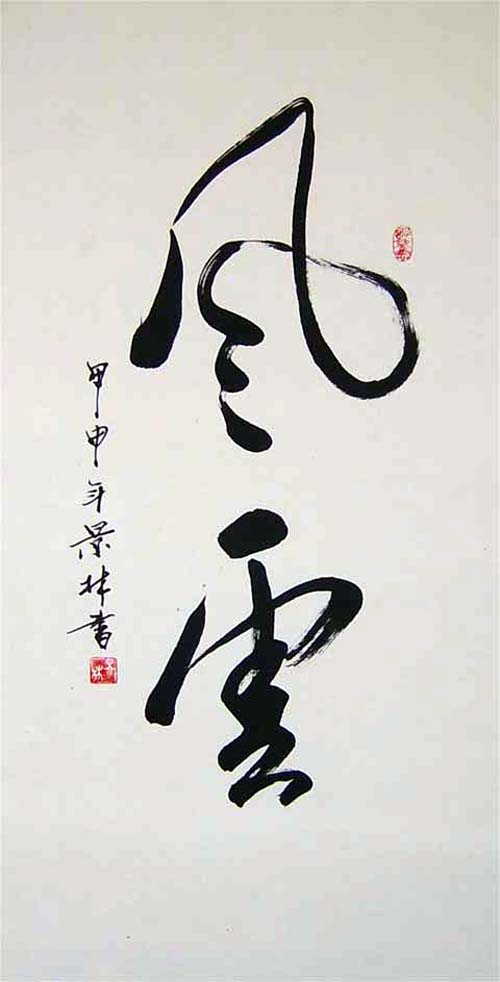 風雲
甲申年景林書